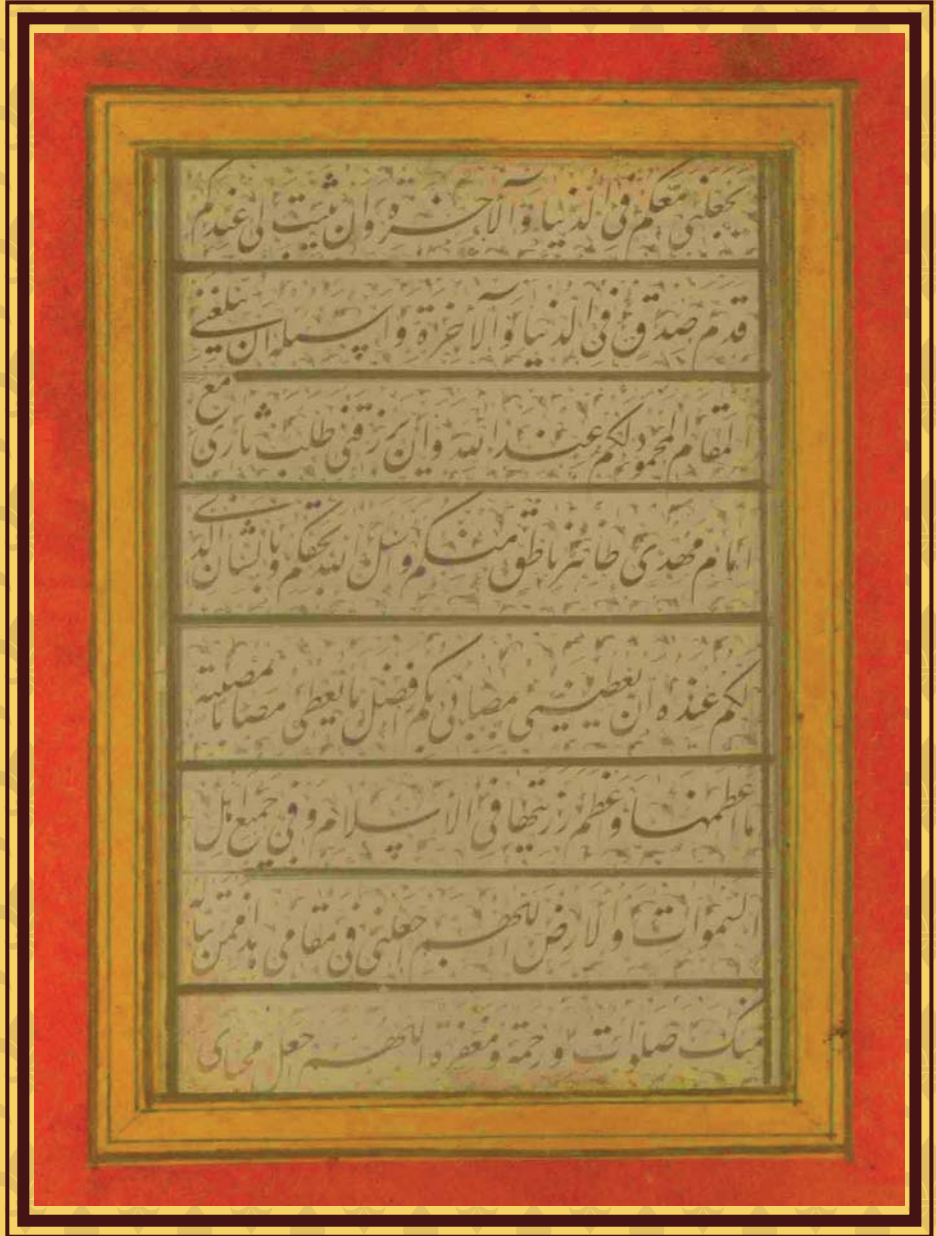 یجعلنی معکم فی الدنیا و الآخرة و ان یثبت لی عندکم
قدم صدق فی الدنیا و الآخرة و اسئله ان یبلغنی
المقام المحمود لکم عند الله و ان یرزقنی طلب ثاری مع
امام مهدی ظاهر ناطق منکم و اسئل الله بحقکم و بالشان الذی
لکم عنده ان یعطینی مصابی بکم افضل ما یعطی مصابا بمصیبته
ما اعظمها و عظم رزیتها فی الاسلام و فی جمیع اهل
السموات و الارض اللهم جعلنی فی مقامی هذا ممن تناله
منک صلوات و رحمة و مغفرة اللهم جعل محیای